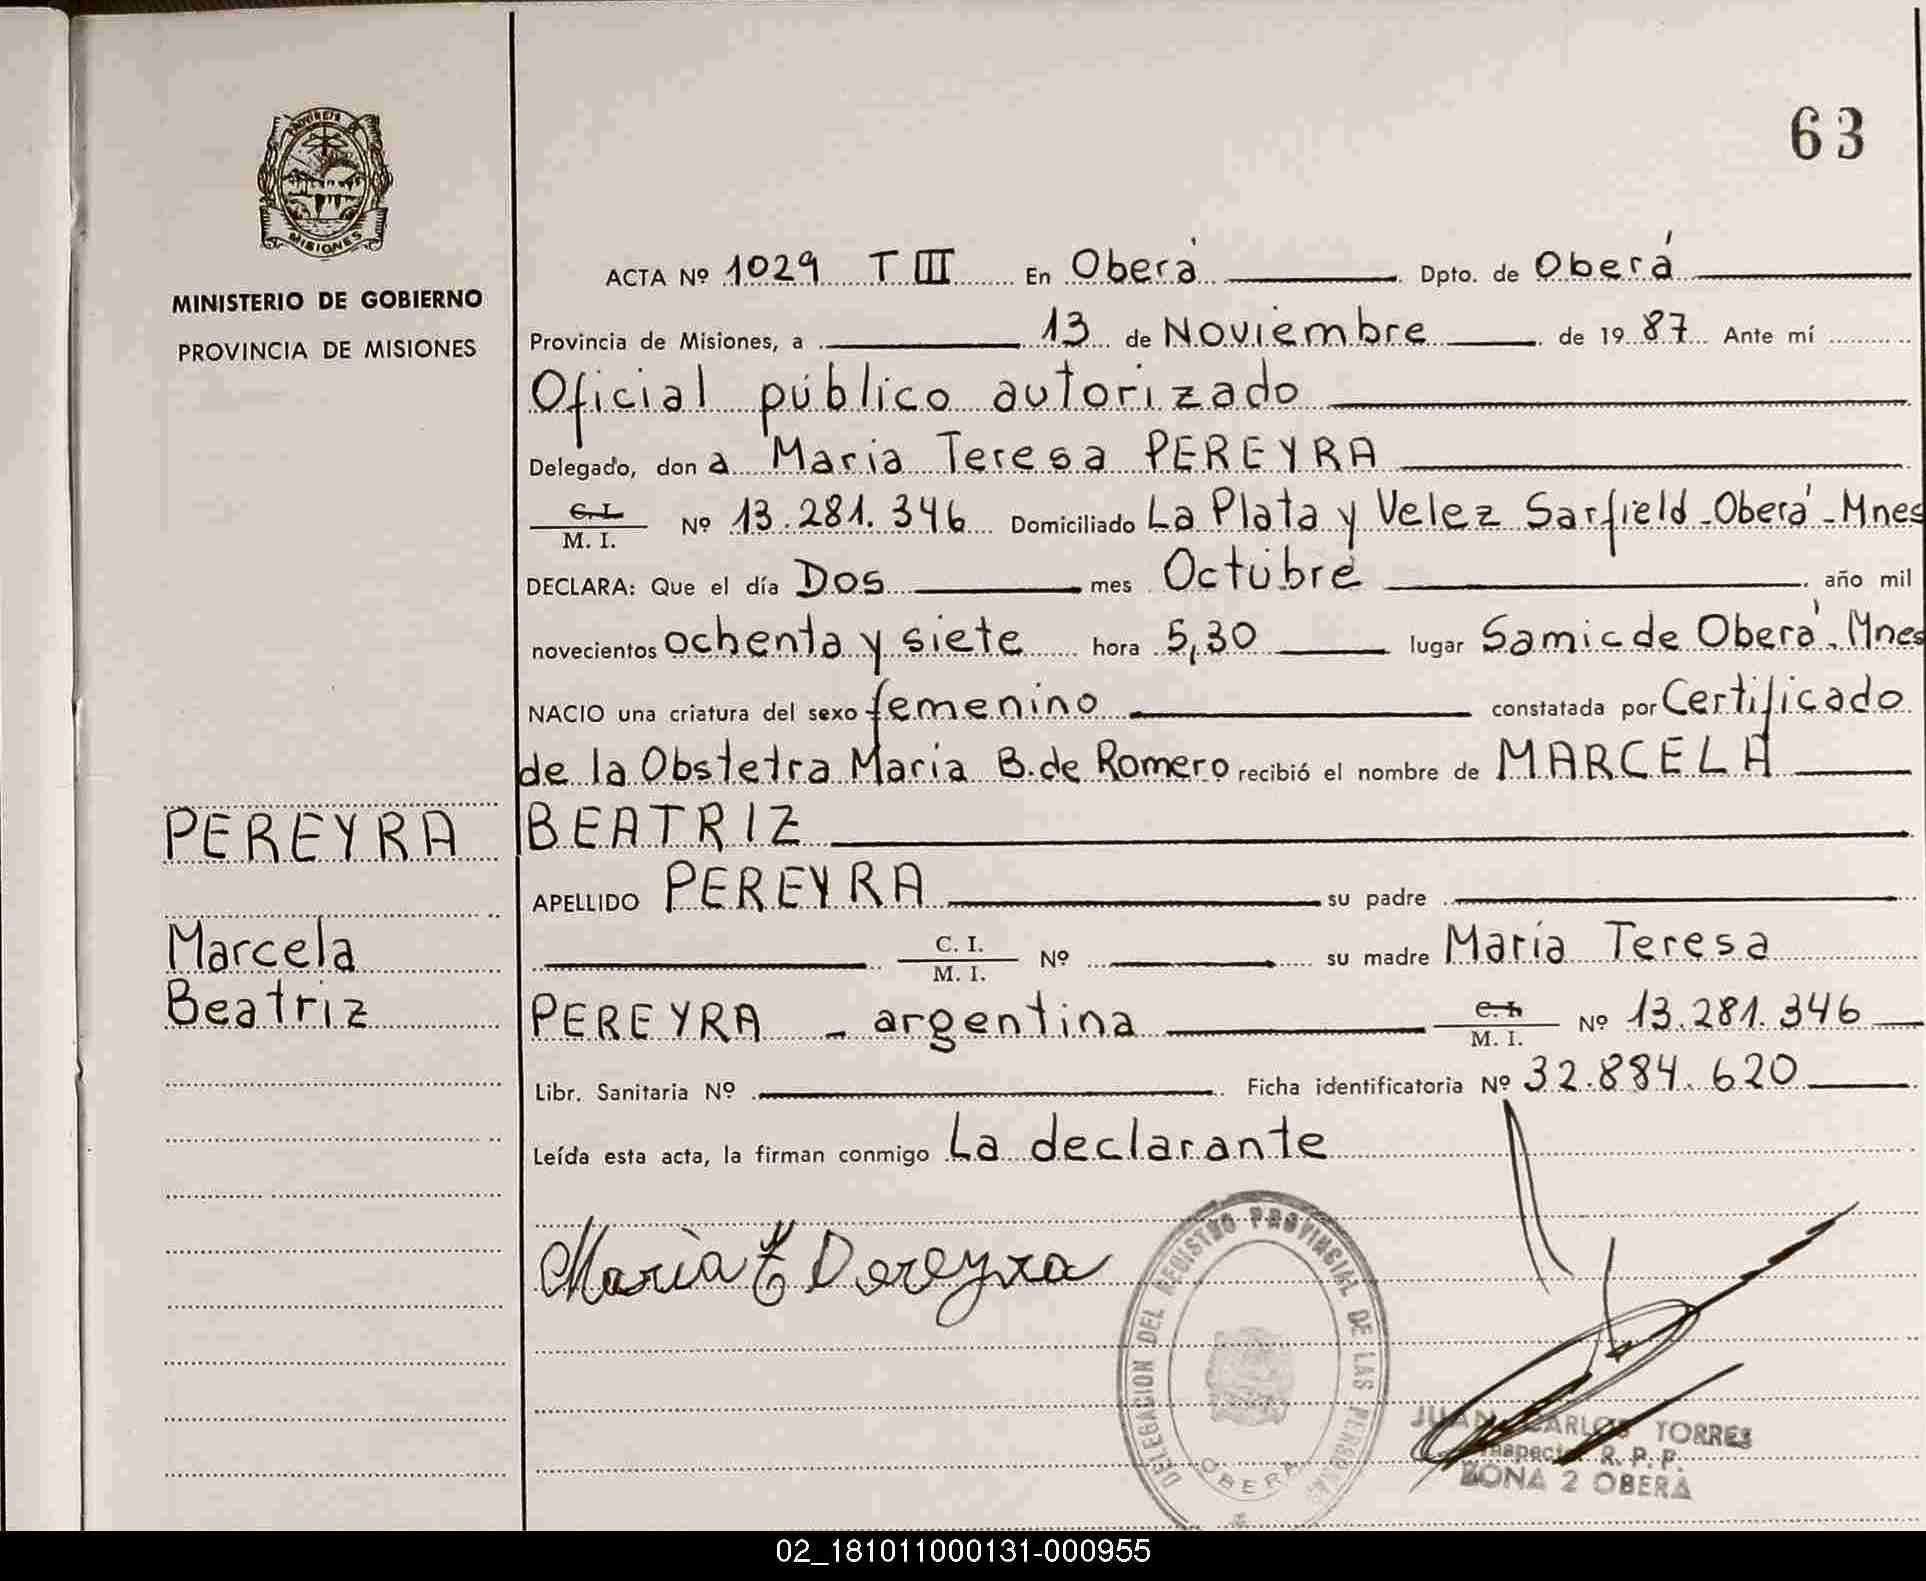 63
PROVINCIA DE
MISIONES
MINISTERIO DE GOBIERNO
PROVINCIA DE MISIONES
ACTA Nº 1029 T III En Oberá Dpto. de Oberá
Provincia de Misiones, a 13 de Noviembre de 19 87 Ante mí
Oficial público autorizado
Delegado, don a Maria Teresa PEREYRA
C. I.
M. I. Nº 13.281.346 Domiciliado La Plata y Velez Sarfield - Oberá - Mnes
DECLARA: Que el día Dos mes Octubre año mil
novecientos ochenta y siete hora 5,30 lugar Samic de Oberá - Mnes
NACIO una criatura del sexo femenino constatada por Certificado
de la Obstetra Maria B. de Romero recibió el nombre de MARCELA
BEATRIZ
PEREYRA
APELLIDO PEREYRA su padre
Marcela
C. I.
M. I. Nº su madre María Teresa
Beatriz
PEREYRA - argentina C. I.
M. I. Nº 13.281.346
Libr. Sanitaria Nº Ficha identificatoria Nº 32.884.620
Leída esta acta, la firman conmigo La declarante
Maria T Pereyra
DELEGACION DEL REGISTRO PROVINCIAL DE LAS PERSONAS
OBERA
JUAN CARLOS TORRES
Inspector R. P. P.
ZONA 2 OBERA
02_181011000131-000955